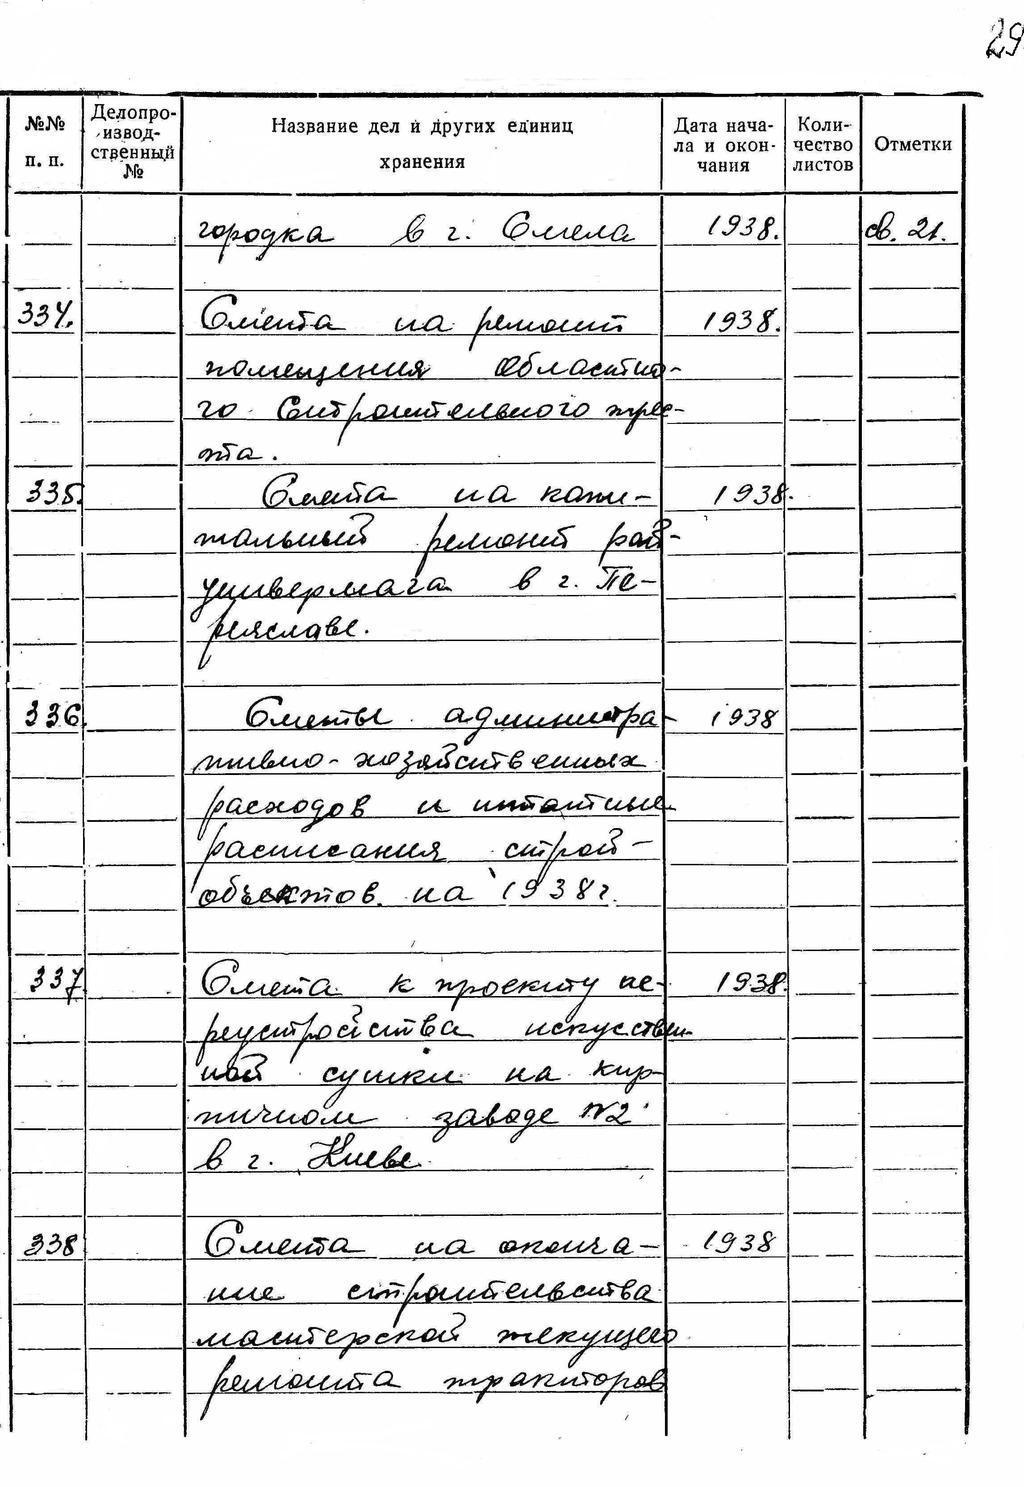 29
№№ п. п. Делопро-изводственный № Название дел и других единиц хранения Дата начала и окончания Количество листов Отметки
городка в г. Смела 1938. св. 21.
334. Смета на ремонт 1938.
помещения Областно-
го Строительного трес-
та.
335. Смета на капи- 1938.
тальный ремонт рай-
универмага в г. Пе-
реяславе.
336. Сметы администра- 1938
тивно-хозяйственных
расходов и штатные
расписания строй-
объектов на 1938 г.
337 Смета к проекту пе- 1938.
реустройства искусствен-
ной сушки на кир-
пичном заводе №2
в г. Киеве
338 Смета на оконча- 1938
ние строительства
мастерской текущего
ремонта тракторов